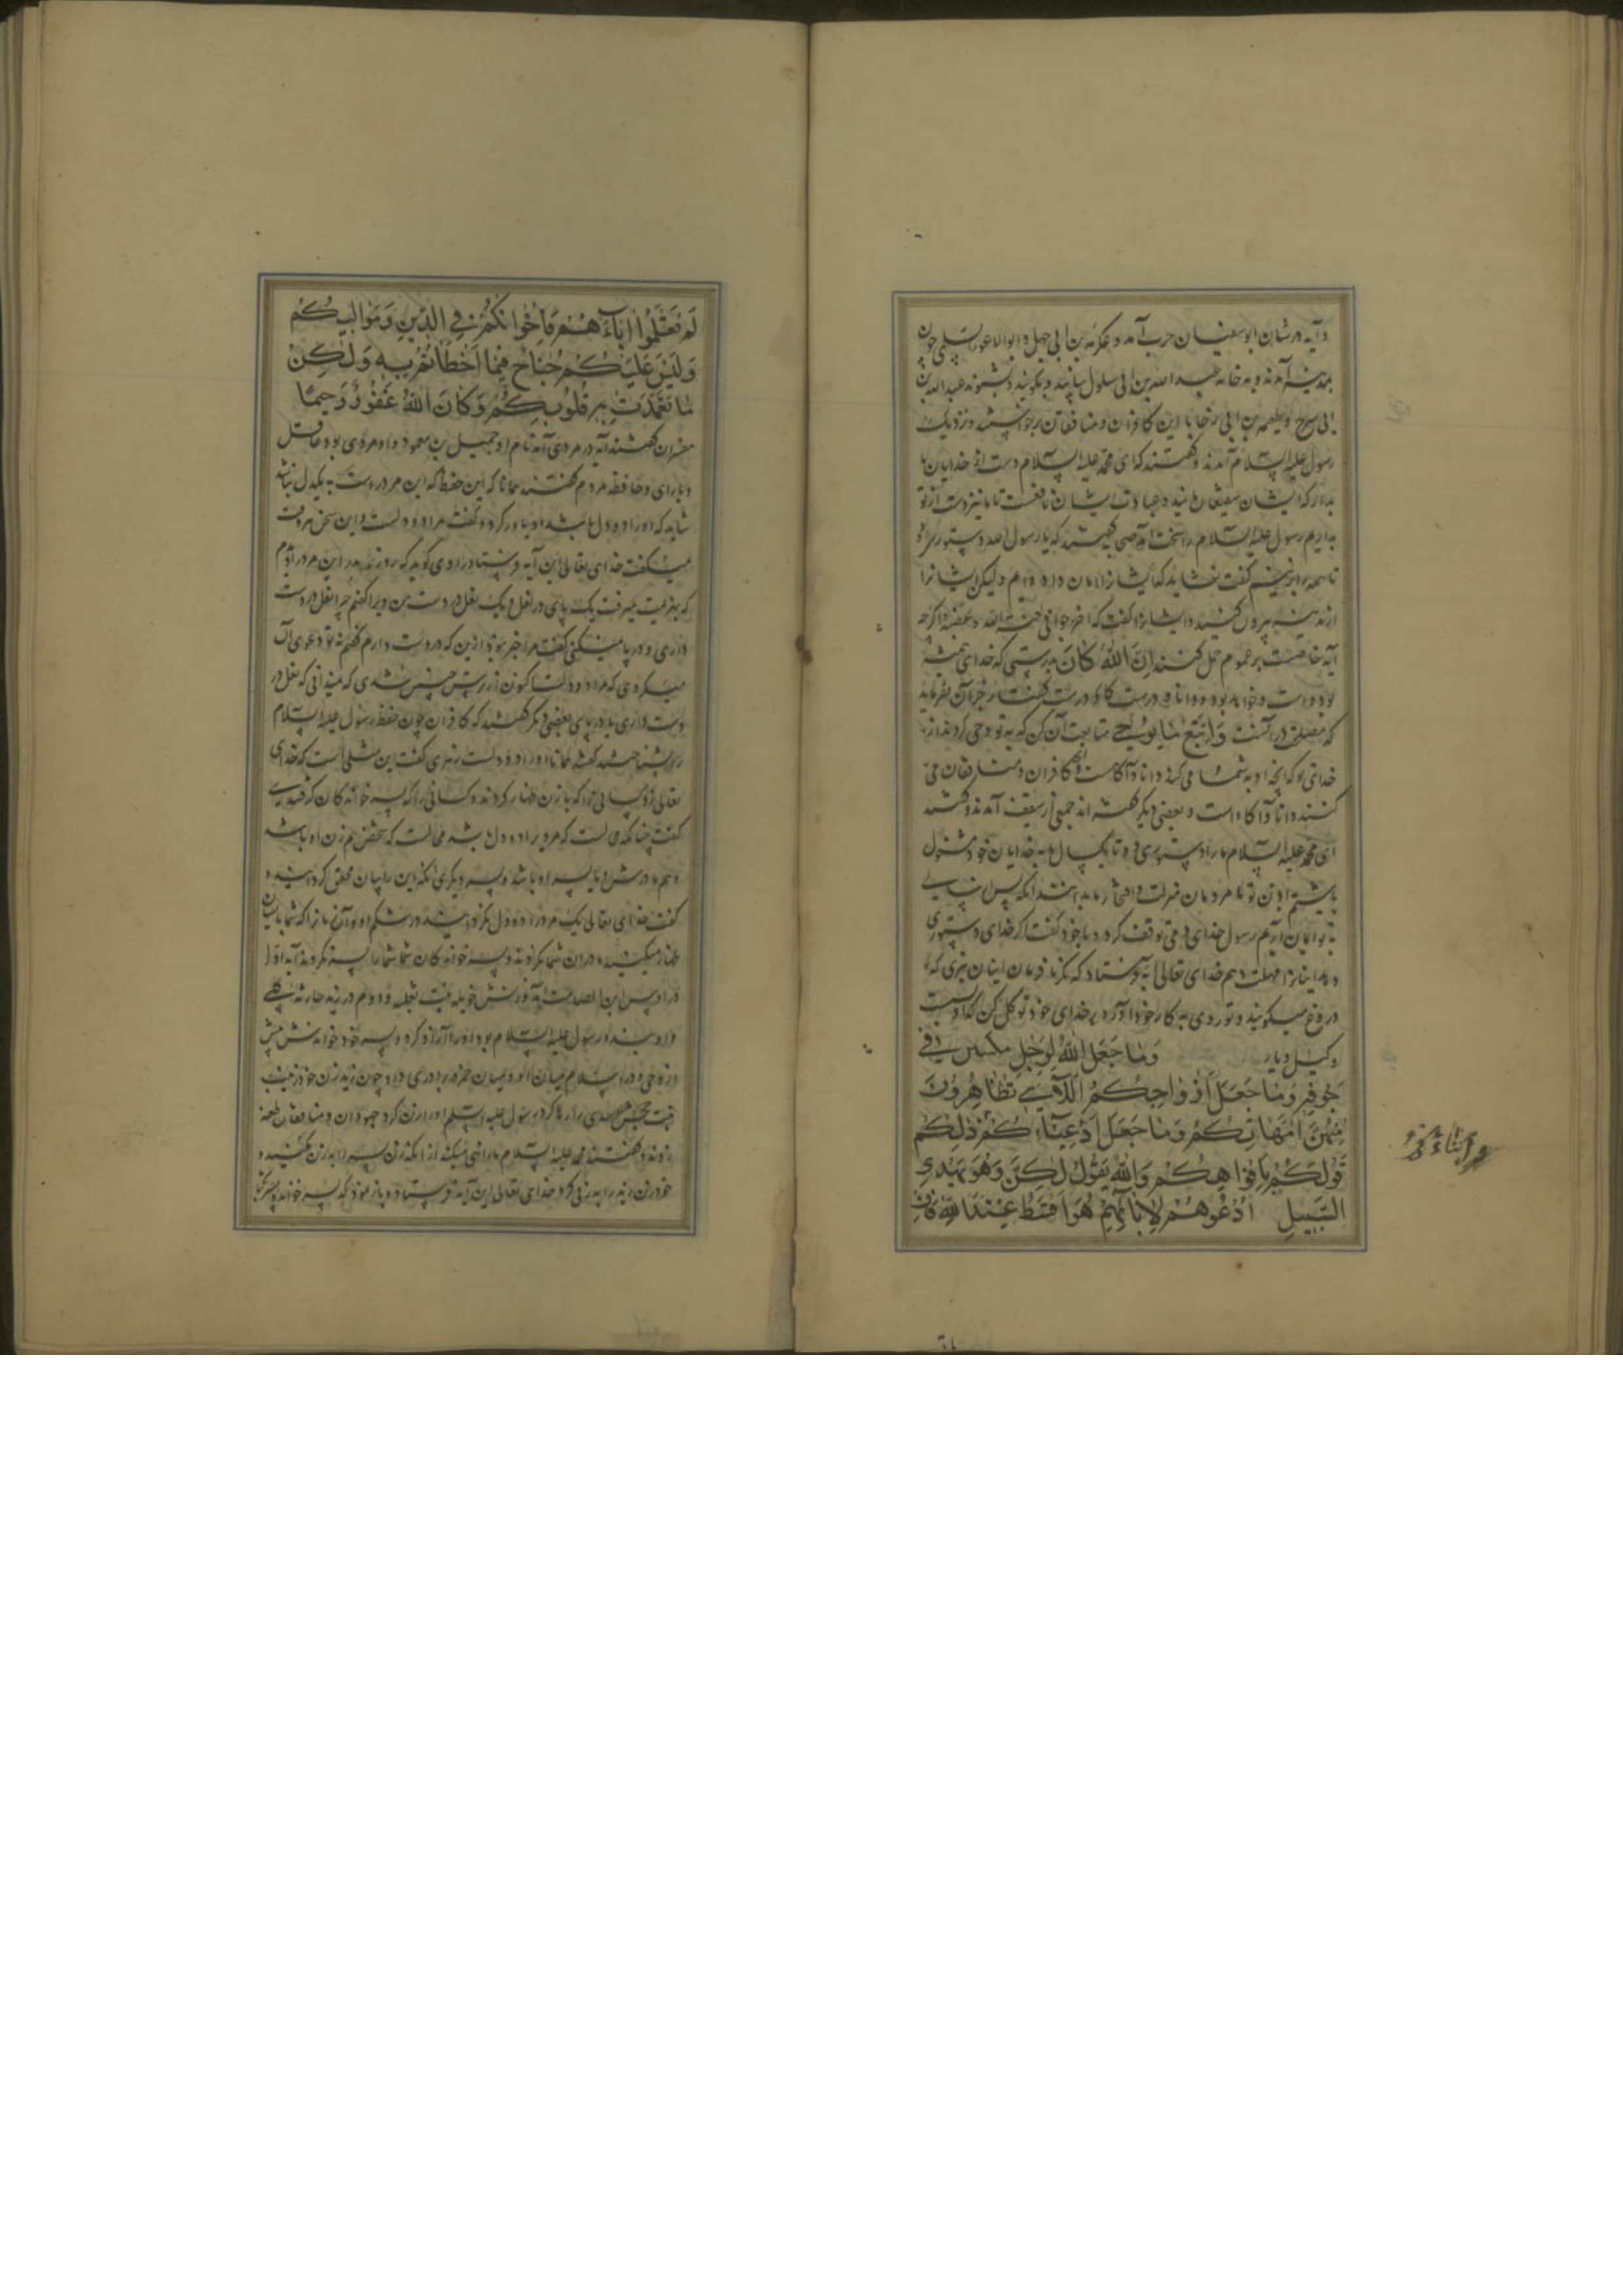 و آیه در شان ابو سفیان حرب آمد و عکرمه بن ابی جهل و ابوالاعور السلمی چون
بمدینه آمدند و به خانه عبد الله بن ابی سلول بیایند و بگویند و بشنوند عبد الله بن
ابی سرح و طعمه بن ابی رخا با این کافران و منافقان برخواستند و نزدیک
رسول علیه السلام آمدند و گفتند که ای محمد علیه السلام دست از خدایان ما
بدار که ایشان شفیعان مانید و عبادت ایشان نافعست تا ما نیز دست از تو
بداریم رسول علیه السلام را سخت آمد صحابه گفتند که یا رسول الله دستور
تا همه را بزنیم گفت نشاید که ایشانرا امان داده‌ام و لیکن ایشانرا
از مدینه بیرون کنید و ایشانرا گفت که اخرجوا فی لعنة الله و غضبه و اگرچه
آیه خاصست بر عموم حمل کنند اِنَّ اللهَ کَانَ بدرستی که خدای همیشه
بود و هست و خواهد بود و دانا و درست کار و درست گفتار جز آن نفرماید
که مصلحت در آنست وَاتَّبِعْ مَا يُوحٰى متابعت آن کن که به تو وحی کردند از
خدای تو که آنچه او به شما می کند دانا و آگاهست و آنچه کافران و منافقان می
کنند دانا و آگاه است و بعضی دیگر گفته اند جمعی از سقیف آمدند و گفتند
ای محمد علیه السلام ما را دستوری ده تا یکسال ما به خدایان خود مشغول
باشیم
به تو ایمان آریم رسول خدای دمی توقف کرد و با خود گفت اگر خدای دستوری
دهد اینانرا مهلت دهم خدای تعالی آیه فرستاد که نگر تا فرمان اینان نبری که
دروغ میگویند و تو روی به کار خود آور و بر خدای خود توکل کن که او بست
وکیل و یار وَمَا جَعَلَ اللهُ لِرَجُلٍ مِنْ قَلْبَيْنِ فِي
جَوْفِهِ وَمَا جَعَلَ أَزْوَاجَكُمُ اللَّائِي تُظَاهِرُونَ
مِنْهُنَّ أُمَّهَاتِكُمْ وَمَا جَعَلَ أَدْعِيَاءَكُمْ ذَلِكُمْ
قَوْلُكُمْ بِأَفْوَاهِكُمْ وَاللهُ يَقُولُ لكن وَهُوَ يَهْدِي
السَّبِيلِ اُدْعُوهُمْ لِآبَائِهِمْ هُوَ أَقْسَطُ عِنْدَ اللهِ فَإِنْ
لَمْ تَعْلَمُوا آبَاءَهُمْ فَإِخْوَانُكُمْ فِي الدِّينِ وَمَوَالِيكُمْ
وَلَيْسَ عَلَيْكُمْ جُنَاحٌ فِيمَا أَخْطَأْتُمْ بِهِ وَلَكِنْ
مَا تَعَمَّدَتْ قُلُوبُكُمْ وَكَانَ اللهُ غَفُورًا رَحِيمًا
مفسران گفتند آیه در مردی آمد نام او جمیل بن معمر و او مردی بود عاقل
و با رای و حافظه مردم گفتند همانا که این حفظ که این مرد راست به یکدل نباشد
شاید که او را دو دل باشد او باور کرد و گفت مرا دو دلست و این سخن هر وقت
میگفت خدای تعالی این آیه فرستاد راوی گوید که روز بدر این مرد را دیدم
که بهزیمت میرفت یک پای در نعل و یک نعل در دست من ویرا گفتم چرا نعل در دست
داری و در پا نمیکنی گفت مرا خبر نبود ازین که در دست دارم گفتم نه تو دعوی آن
میکردی که مرا دو دلست اکنون از ترس چنین شدی که نمیدانی که نعل در
دست داری یا در پای بعضی دیگر گفتند که کافران چون حفظ رسول علیه السلام
بشناختند گفتند همانا او را دو دلست زهری گفت این مثلی است که خدای
تعالی زد کسانی را که با زن ظهار کردند و کسانی را که پسر خوانده کان گرفتندی
گفت چنانکه محالست که مرد را دو دل باشد محالست که شخص هم زن او باشد
و هم مادرش و یا پسر او باشد و پسر دیگری آنکه این را بیان محقق گردانید و
گفت خدای تعالی یک مرد را دو دل نکردانید در شکم او و آن زنانرا که شما با ایشان
ظهار میکنید مادران شما نکردند و پسر خوانده کان شما شما را پسر نکردند آیه اول
در اوس بن الصامت آمد و زنش خویله بنت ثعلبه و دوم در زید حارثه کلبی
و او بنده رسول علیه السلام بود او را آزاد کرد و پسر خود خواندش پیش
از وحی و در اسلام میان او و میان حمزه برادری داد چون زید زن خود زینب
بنت جحش اسدی را رها کرد رسول علیه السلام او را زن کرد جهودان و منافقان طعنه
زدند و گفتند محمد علیه السلام ما را نهی میکند از آنکه زن پسر را به زن کنید و
خود زن زید را به زنی کرد خدای تعالی این آیه فرستاد و باز نمود که پسر خوانده پسر